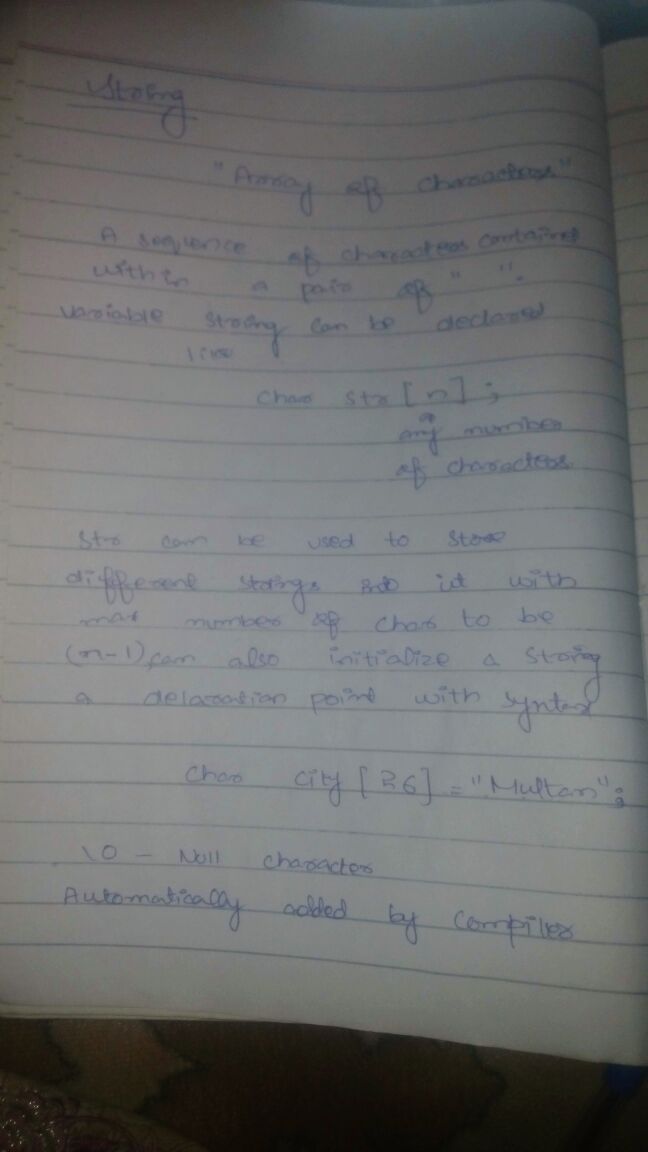 String
"Array of characters"
A sequence of characters contained
within a pair of " ".
variable string can be declared
like
char str [n] ;
any number
of characters.
str can be used to store
different strings in it with
max number of char to be
(n-1) can also initialize a string
a delaration point with syntax
char city [36] = "Multan";
\0 - Null character
Automatically added by compiler